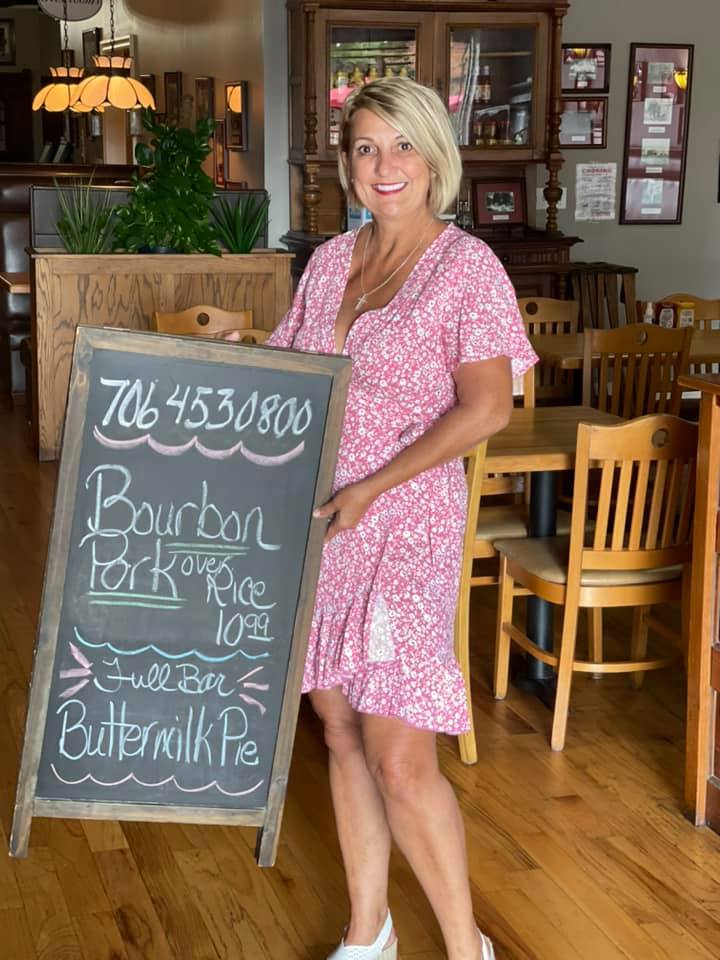 706 4530800
Bourbon
Pork over
Rice
10 99
Full Bar
Buttermilk Pie